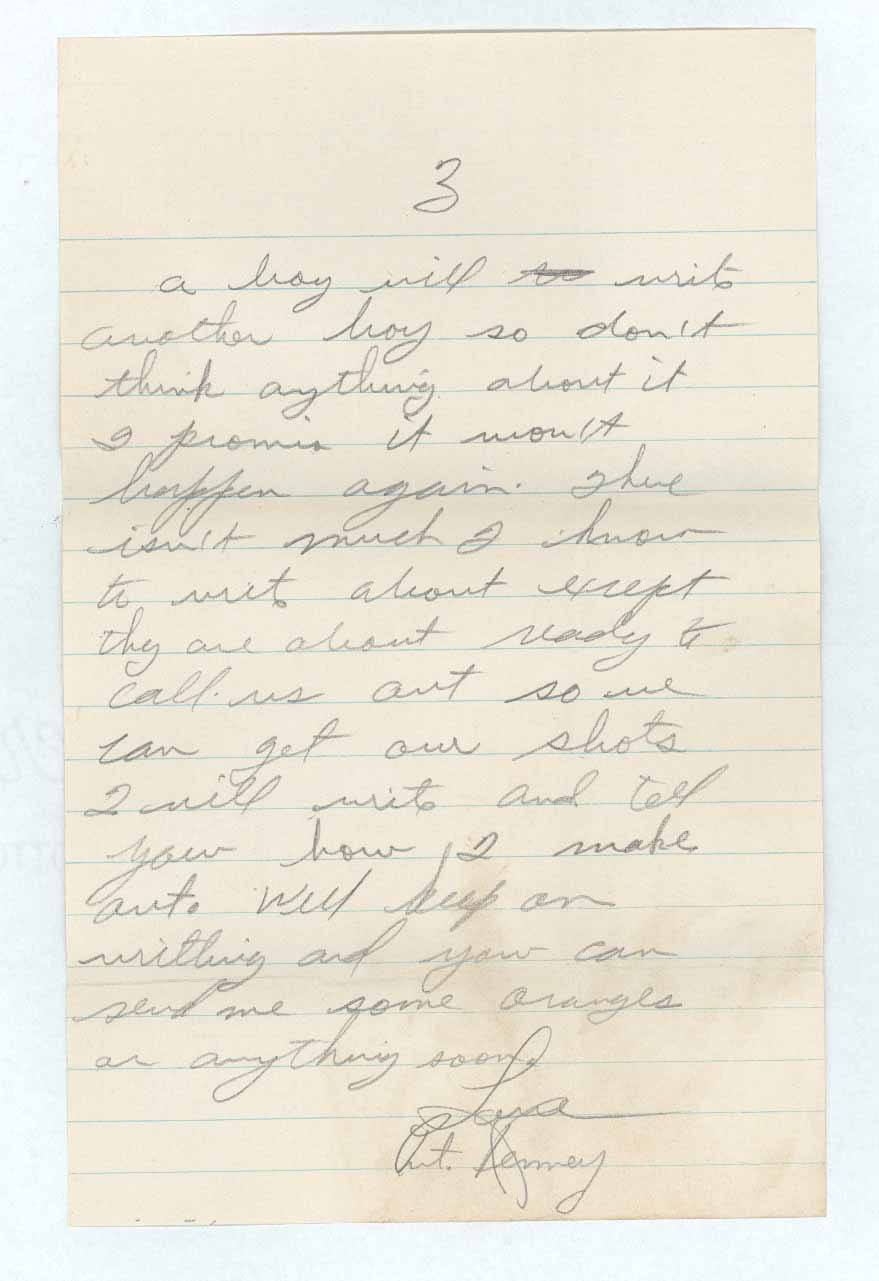 3
a boy will writ
another boy so don't
think anything about it
I promis it won't
happen again. There
isn't much I know
to writ about except
they are about ready to
call us out so we
can get our shots
I will writ and tell
yow how I make
out. Well keep on
writhing and yow can
send me some oranges
or anything soon.
Love
Pvt. Kenney